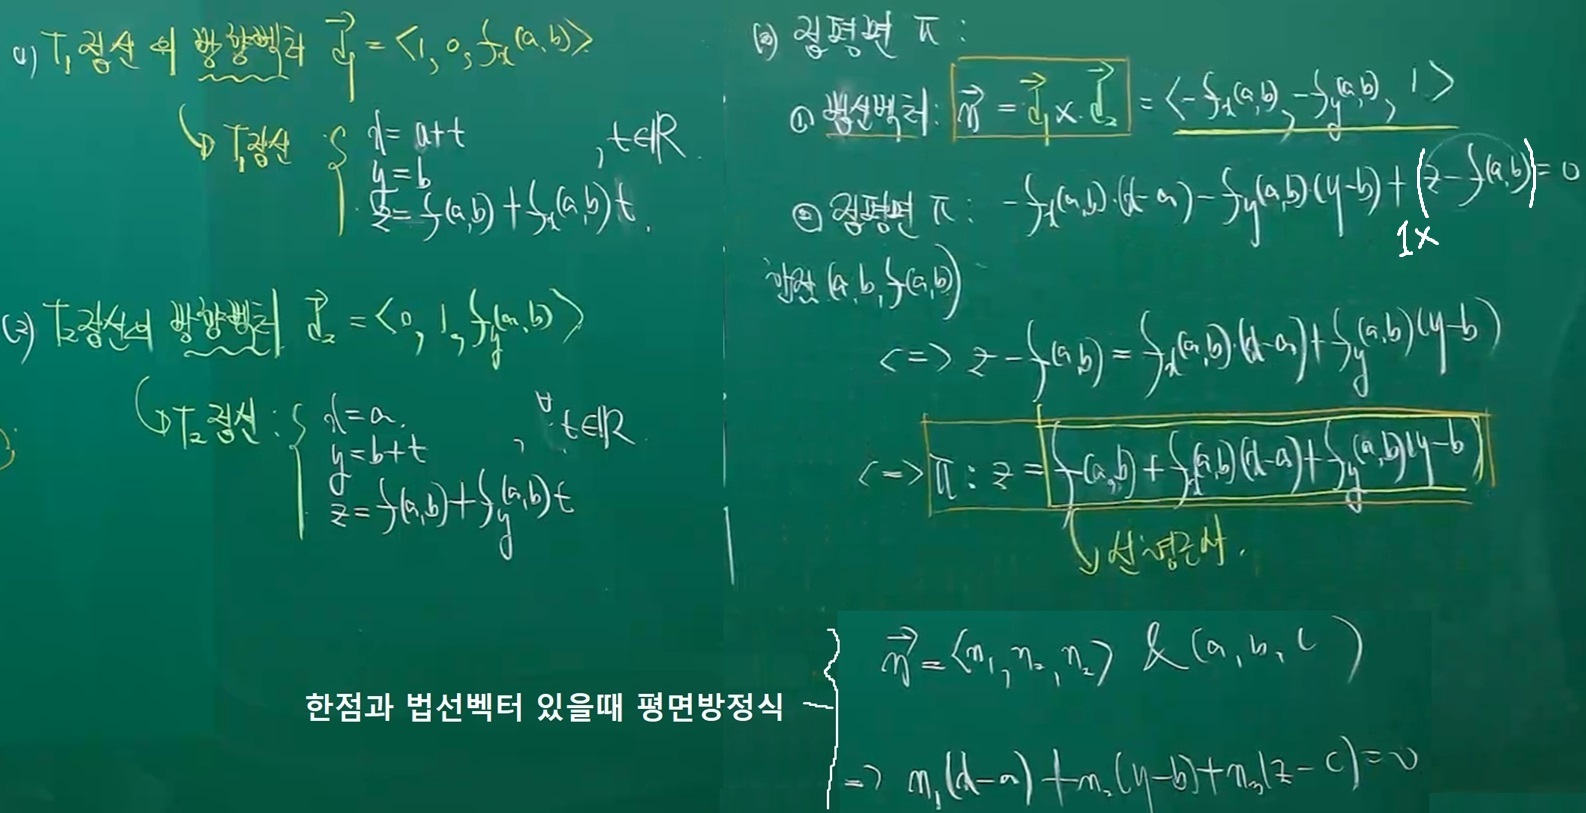 (1) T₁접선의 방향벡터 d⃗₁ = <1, 0, fₓ(a,b)>
↳ T₁접선 { x = a+t
y = b , t∈ℝ.
z = f(a,b) + fₓ(a,b)t.
(2) T₂접선의 방향벡터 d⃗₂ = <0, 1, f_y(a,b)>
↳ T₂접선 : { x = a.
y = b+t , ∀t∈ℝ.
z = f(a,b) + f_y(a,b)t
(3) 접평면 π :
① 법선벡터 : n⃗ = d⃗₁ × d⃗₂ = <-fₓ(a,b), -f_y(a,b), 1>
② 접평면 π : -fₓ(a,b)·(x-a) - f_y(a,b)(y-b) + (z - f(a,b)) = 0
1×
한점 (a, b, f(a,b))
<=> z - f(a,b) = fₓ(a,b)·(x-a) + f_y(a,b)(y-b)
<=> π : z = f(a,b) + fₓ(a,b)(x-a) + f_y(a,b)(y-b)
↳ 선형근사.
n⃗ = <n₁, n₂, n₂> & (a, b, c)
한점과 법선벡터 있을때 평면방정식
=> n₁(x-a) + n₂(y-b) + n₃(z-c) = 0